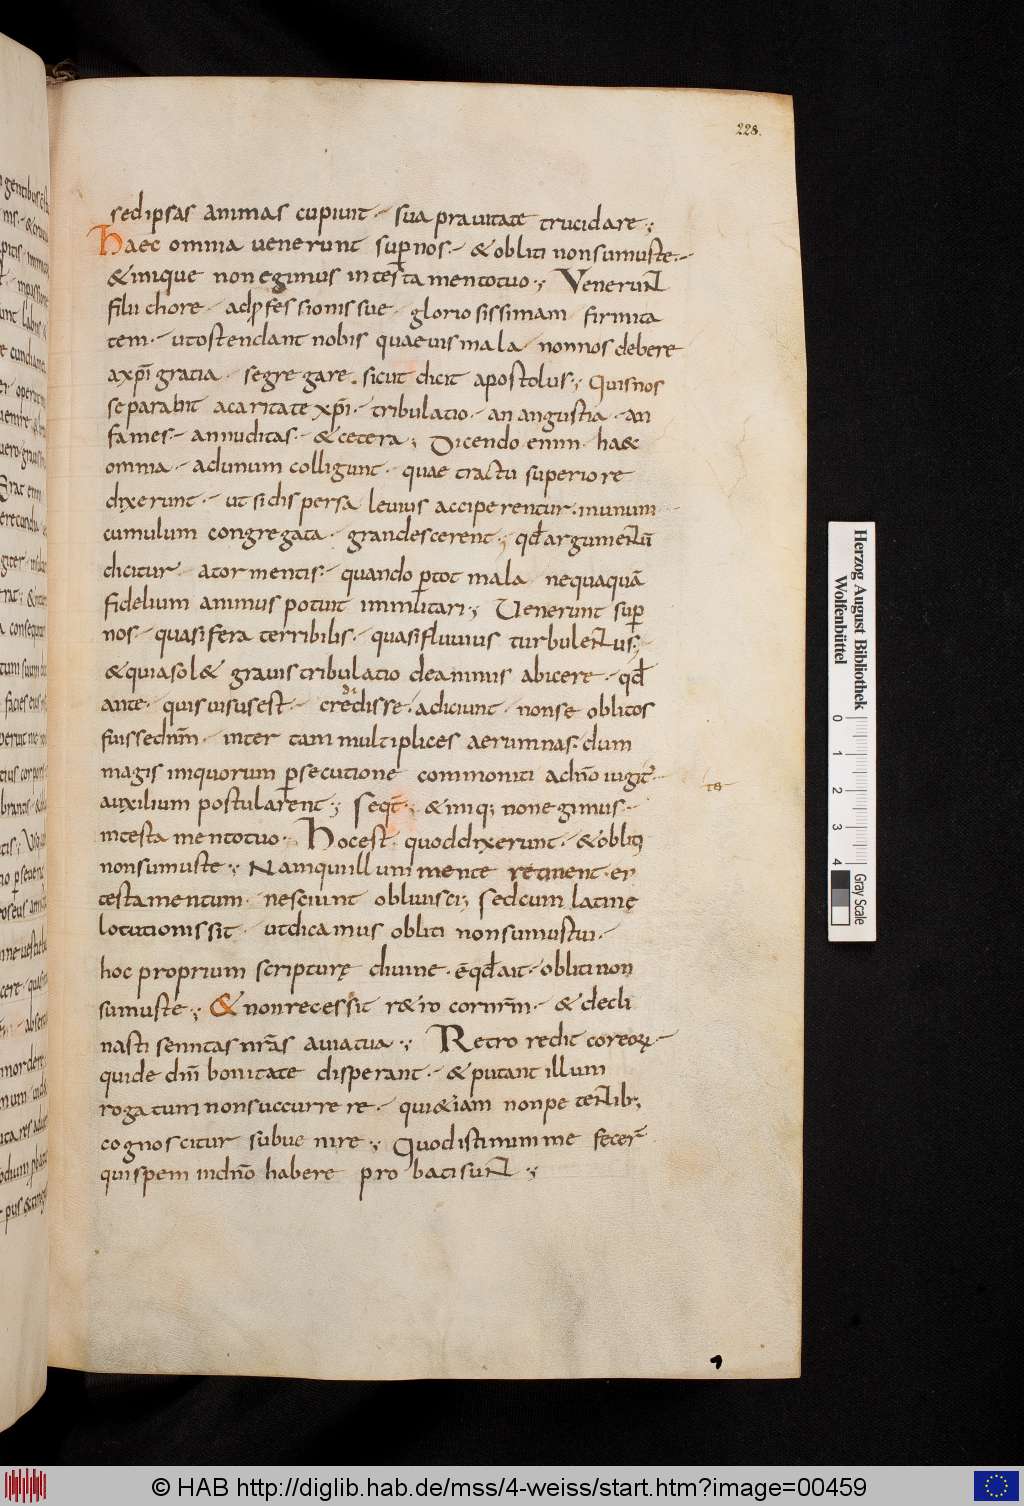 228.
sed ipsas animas cupiunt · sua pravitate trucidare ;
Haec omnia uenerunt sup nos · & obliti non sumus te ·
& inique non egimus in testamento tuo ; VeneruNt
filii chore · ad p̱fessionis sue · gloriosissimam firmita
tem · ut ostendant nobis quaeuis mala · non nos debere
a xp̄i gratia · segregare · sicut dicit apostolus ; Quis nos
separabit a caritate xp̄i · tribulatio · an angustia · an
fames · an nuditas · & cetera ; Dicendo enim · haec
omnia · ad unum colligunt · quae tractu superiore
dixerunt · ut si dispersa leuius acciperentur · in unum
cumulum congregata · grandescerent ; qđ argumentū
dicitur · a tormentis · quando p tot mala nequaquā
fidelium animus potuit inmutari ; Venerunt sup
nos · quasi fera terribilis · quasi fluuius turbuleNtus ;
& quia sol& grauis tribulatio de animis abicere · qđ
ante · quis uisus est · credidisse · adiciunt · non se oblitos
fuisse dn̄m · inter tam multiplices aerumnas · dum
magis iniquorum psecutione commoniti a dn̄o iugit̄ ·
auxilium postularent ; Seqt̄ ; & iniq; non egimus ·
in testamento tuo · Hoc est · quod dixerunt · & obliti
non sumus te ; Nam qui illum mente retinent · et
testamentum · nesciunt obliuisci ; sed cum latinę
locutionis sit · ut dicamus obliti non sumus tui ·
hoc proprium scripturę diuine · ē qđ ait · obliti non
sumus te ; & non recessit r&ro cor nr̄m · & decli
nasti semitas nr̄as a uia tua ; Retro redit cor eorꝝ ·
qui de dn̄i bonitate disperant · & putant illum
rogatum non succurrere · qui &iam non peteNtib;
cognoscitur subuenire ; Quod isti minime fecer̄
qui spem in dn̄o habere probati suNt ;
Herzog August Bibliothek
Wolfenbüttel
0 1 2 3 4
Gray Scale
© HAB http://diglib.hab.de/mss/4-weiss/start.htm?image=00459